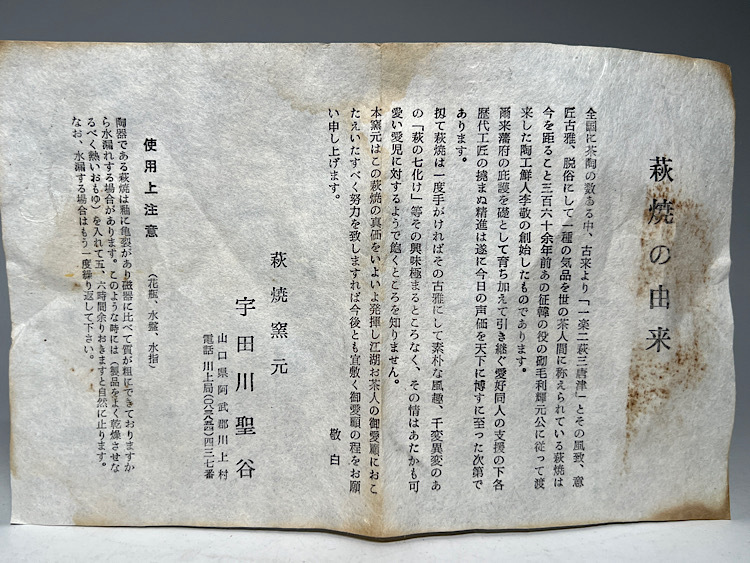 萩焼の由来
全国に茶陶の数ある中、古来より「一楽二萩三唐津」とその風致、意
匠古雅、脱俗にして一種の気品を世の茶人間に称えられている萩焼は
今を距ること三百六十余年前あの征韓の役の砌毛利輝元公に従って渡
来した陶工鮮人李敬の創始したものであります。
爾来藩府の庇護を礎として育ち加えて引き継ぐ愛好同人の支援の下各
歴代工匠の撓まぬ精進は遂に今日の声価を天下に博すに至った次第で
あります。
扨て萩焼は一度手がければその古雅にして素朴な風趣、千変異変のあ
の「萩の七化け」等その興味極まるところなく、その情はあたかも可
愛い愛児に対するようで飽くところを知りません。
本窯元はこの萩焼の真価をいよいよ発揮し江湖お茶人の御愛顧におこ
たえいたすべく努力を致しますれば今後とも宜敷く御愛顧の程をお願
い申し上げます。
敬白
萩焼窯元
宇田川聖谷
山口県阿武郡川上村
電話 川上局(〇八三八五四)四三七番
使用上注意 (花瓶、水盤、水指)
陶器である萩焼は釉に亀裂があり磁器に比べて質が粗にできておりますか
ら水漏れする場合があります。このような時には(製品をよく乾燥させな
るべく熱いおもゆ)を入れて五、六時間余りおきますと自然に止ります。
なお、水漏する場合はもう一度繰り返して下さい。